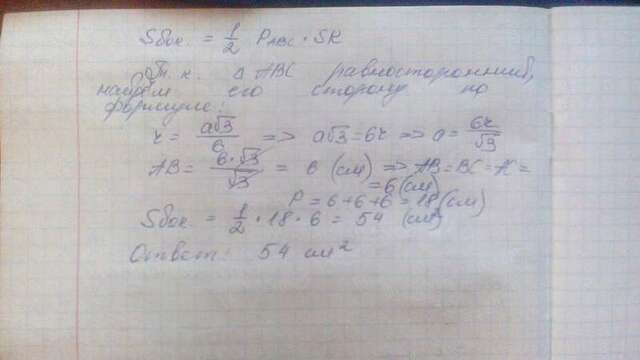 Sбок. = 1/2 P_ABC · SK
Т. к. △ ABC равносторонний,
найдём его сторону по
формуле:
r = a√3/6 => a√3=6r => a= 6r/√3
AB= 6·√3/√3 = 6 (см) => AB=BC=AC=
=6(см)
P = 6+6+6 = 18(см)
Sбок = 1/2 · 18 · 6 = 54 (см)
Ответ: 54 см²